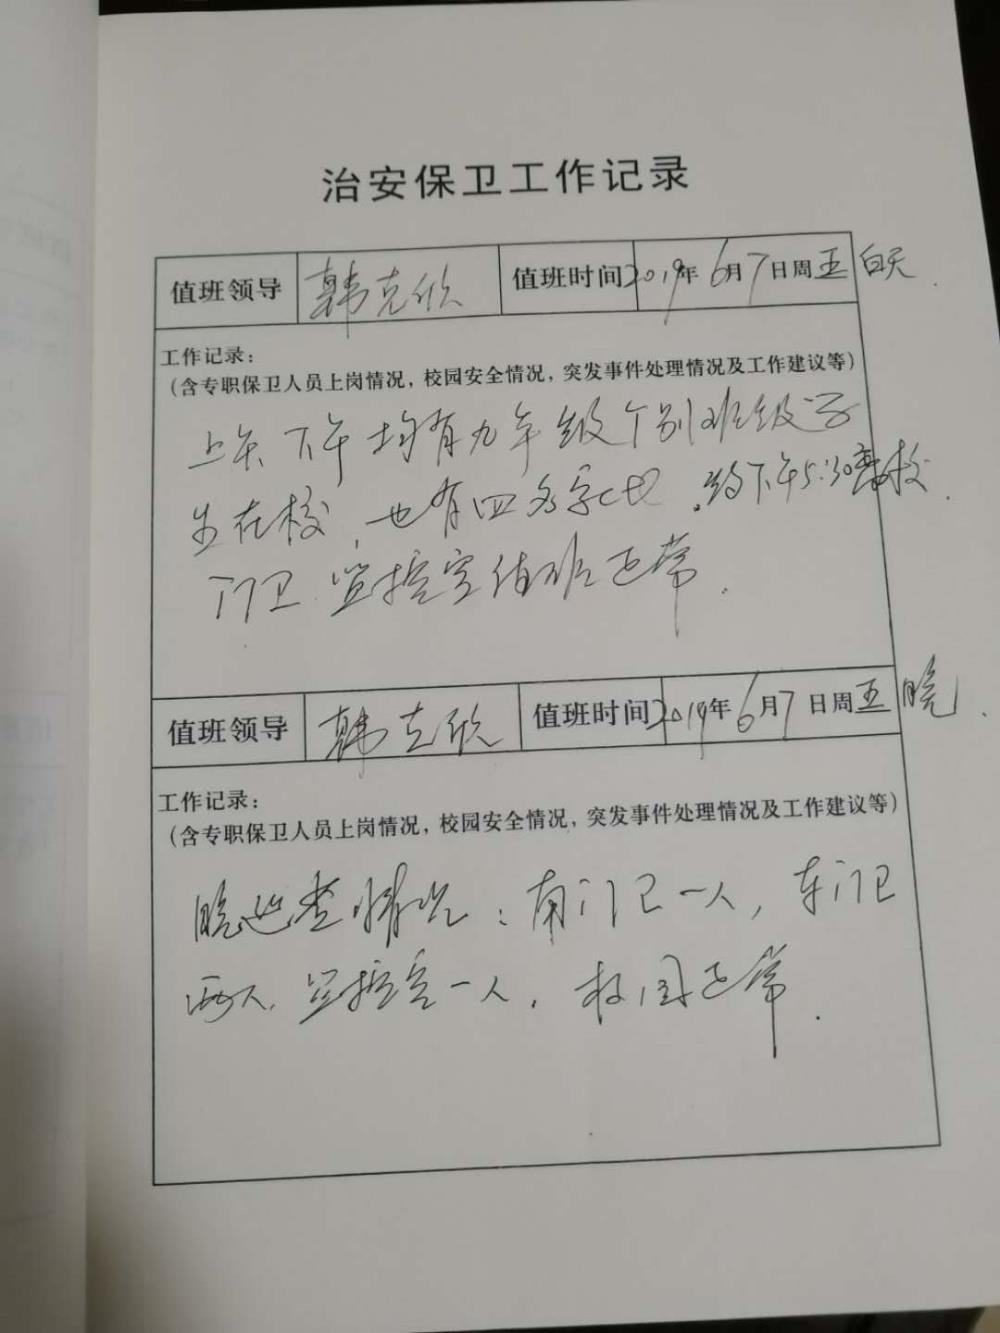 治安保卫工作记录
值班领导 韩克欣 值班时间 2019年6月7日周五 白天
工作记录：
（含专职保卫人员上岗情况，校园安全情况，突发事件处理情况及工作建议等）
上午、下午均有九年级个别班级学
生在校，也有四名 约下午5:30离校
门卫、监控室值班正常.
值班领导 韩克欣 值班时间 2019年6月7日周五 晚.
工作记录：
（含专职保卫人员上岗情况，校园安全情况，突发事件处理情况及工作建议等）
晚巡查情况：南门卫一人，东门卫
两人，监控室一人，校园正常.